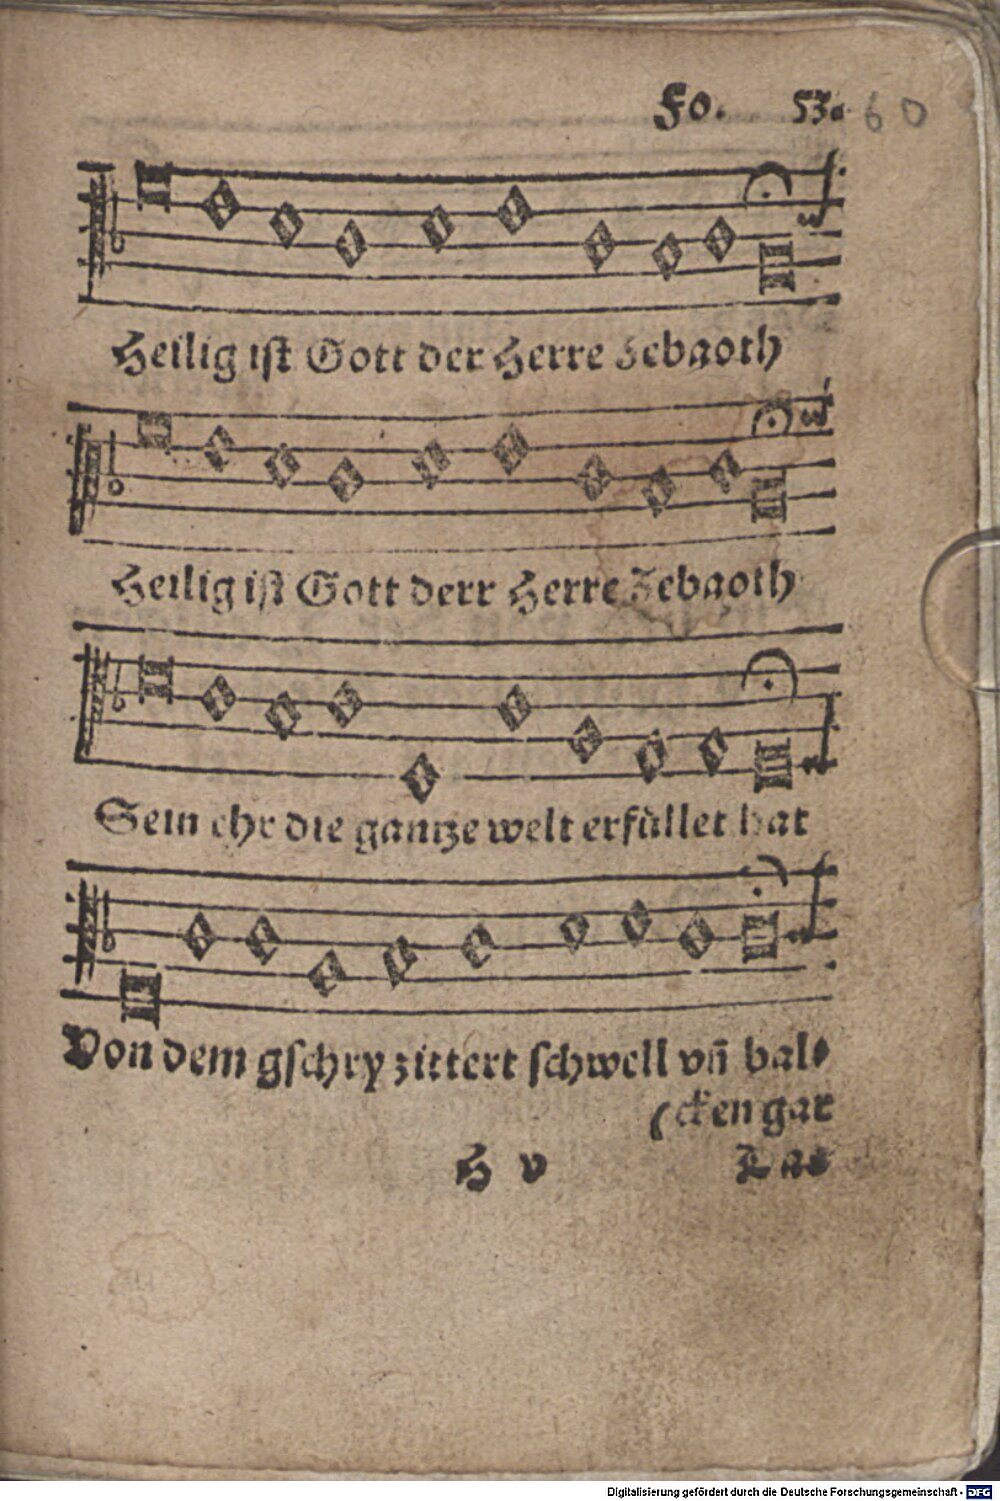 Fo. 53. 60
Heilig ist Gott der Herre Zebaoth
Heilig ist Gott derr Herre Zebaoth
Sein ehr die gantze welt erfüllet hat
Von dem gschry zittert schwell vñ bal⸗
(cken gar
H v Das
Digitalisierung gefördert durch die Deutsche Forschungsgemeinschaft - DFG